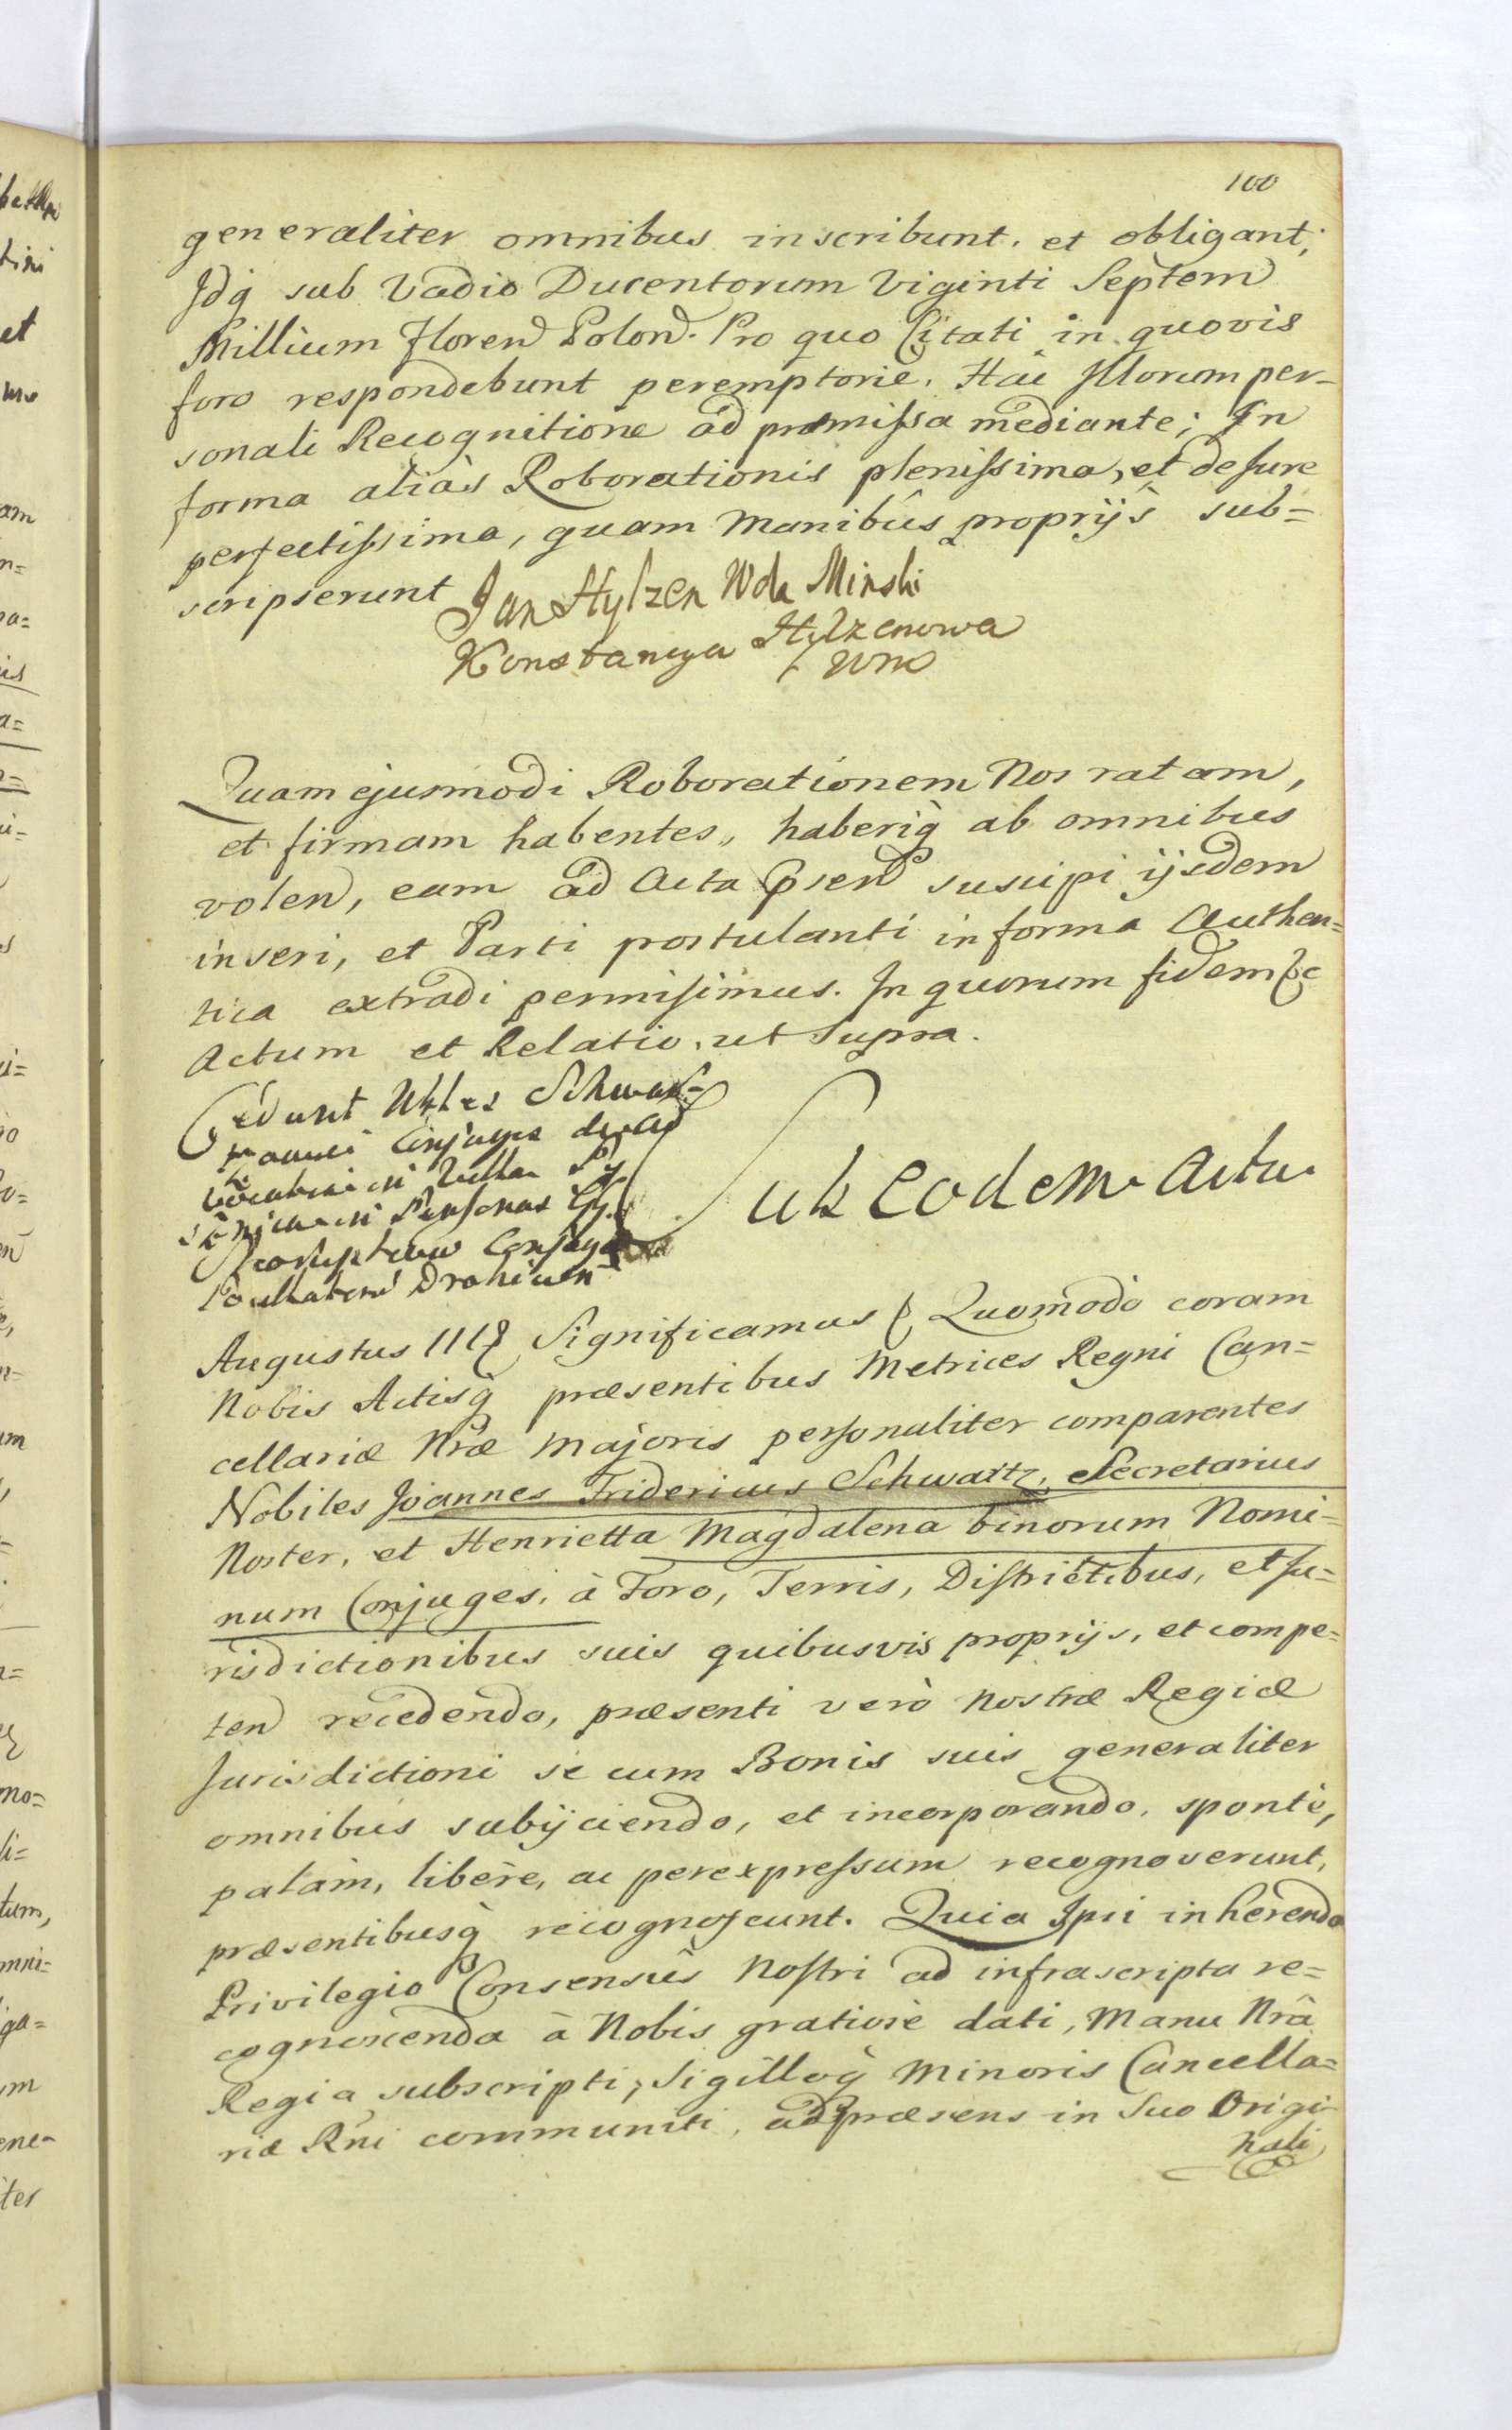 100
generaliter omnibus inscribunt, et obligant;
Idq sub Vadio Ducentorum Viginti Septem
Millium Floren Polon. Pro quo Citati in quovis
foro respondebunt peremptoriè. Hac Illorum per-
sonali Recognitione ad præmissa mediante; In
forma aliàs Roborationis plenissima, et de Jure
perfectissima, quam Manibûs proprijs sub=
scripserunt
Jan Hylzen Wda Minski
Konstancya Hylzenowa
WM
Quam ejusmodi Roborationem Nos ratam,
et firmam habentes, haberiq̀ ab omnibus
volen, eam ad Acta psen suscipi ijsdem
inseri, et Parti postulanti in forma Authen=
tica extradi permisimus. In quorum fidem &c
Actum et Relatio ut Supra.
Cedunt Schwar=
Conjuges
Personas
Conjugum
Sub eodem Actu
Augustus IIIus Significamus Quomodo coram
Nobis Actisq̀ præsentibus Metrices Regni Can=
cellariæ Nræ Majoris personaliter comparentes
Nobiles Joannes Fridericus Schwartz, Secretarius
Noster, et Henrietta Magdalena binorum Nomi=
num Conjuges, à Foro, Terris, Districtibus, et Ju=
risdictionibus suis quibusvis proprijs, et compe=
ten recedendo, præsenti verò Nostræ Regiæ
Jurisdictioni se cum Bonis suis generaliter
omnibus subijciendo, et incorporando, spontè,
palàm, liberè, ac per expressum recognoverunt,
præsentibusq̀ recognoscunt. Quia Ipsi inhærendo
Privilegio Consensûs Nostri ad infrascripta re=
cognoscenda à Nobis gratiosè dati, Manu Nrâ
Regia subscripti, Sigilloq̀ Minoris Cancella=
riæ Rni communiti, ad præsens in Suo Origi-
nali